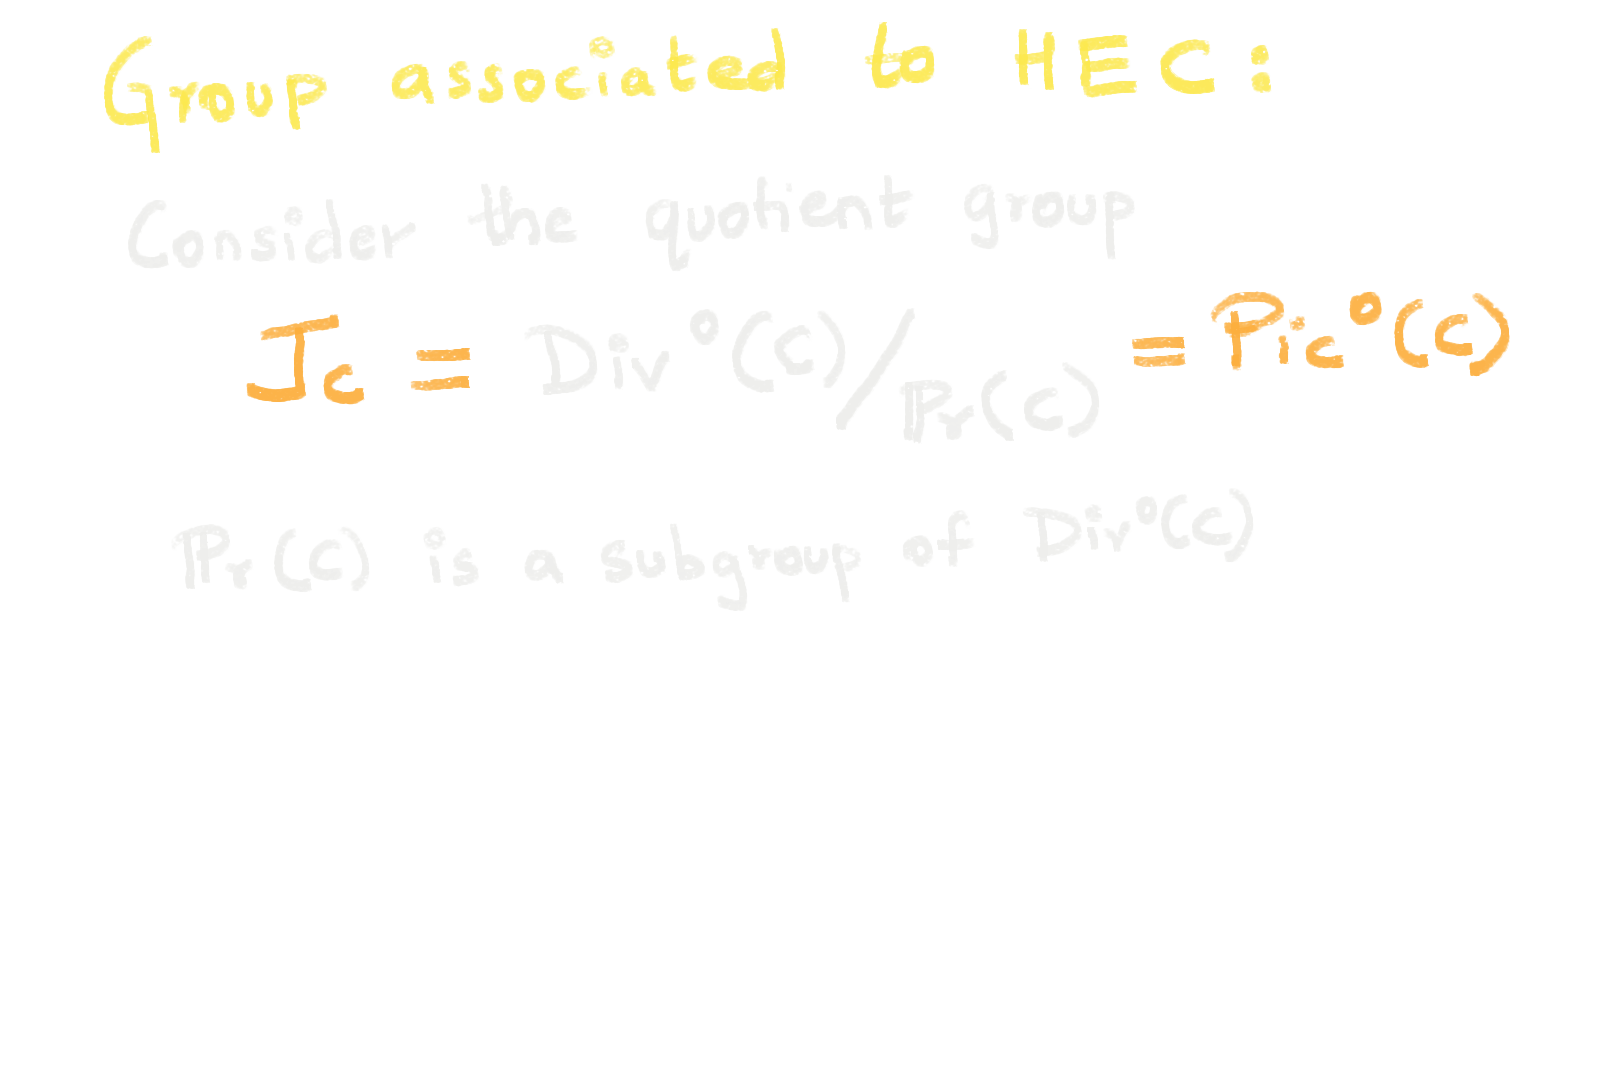 Group associated to HEC:
Consider the quotient group
J_C = Div⁰(C)/ℙr(C) = Pic⁰(C)
ℙr(C) is a subgroup of Div⁰(C)